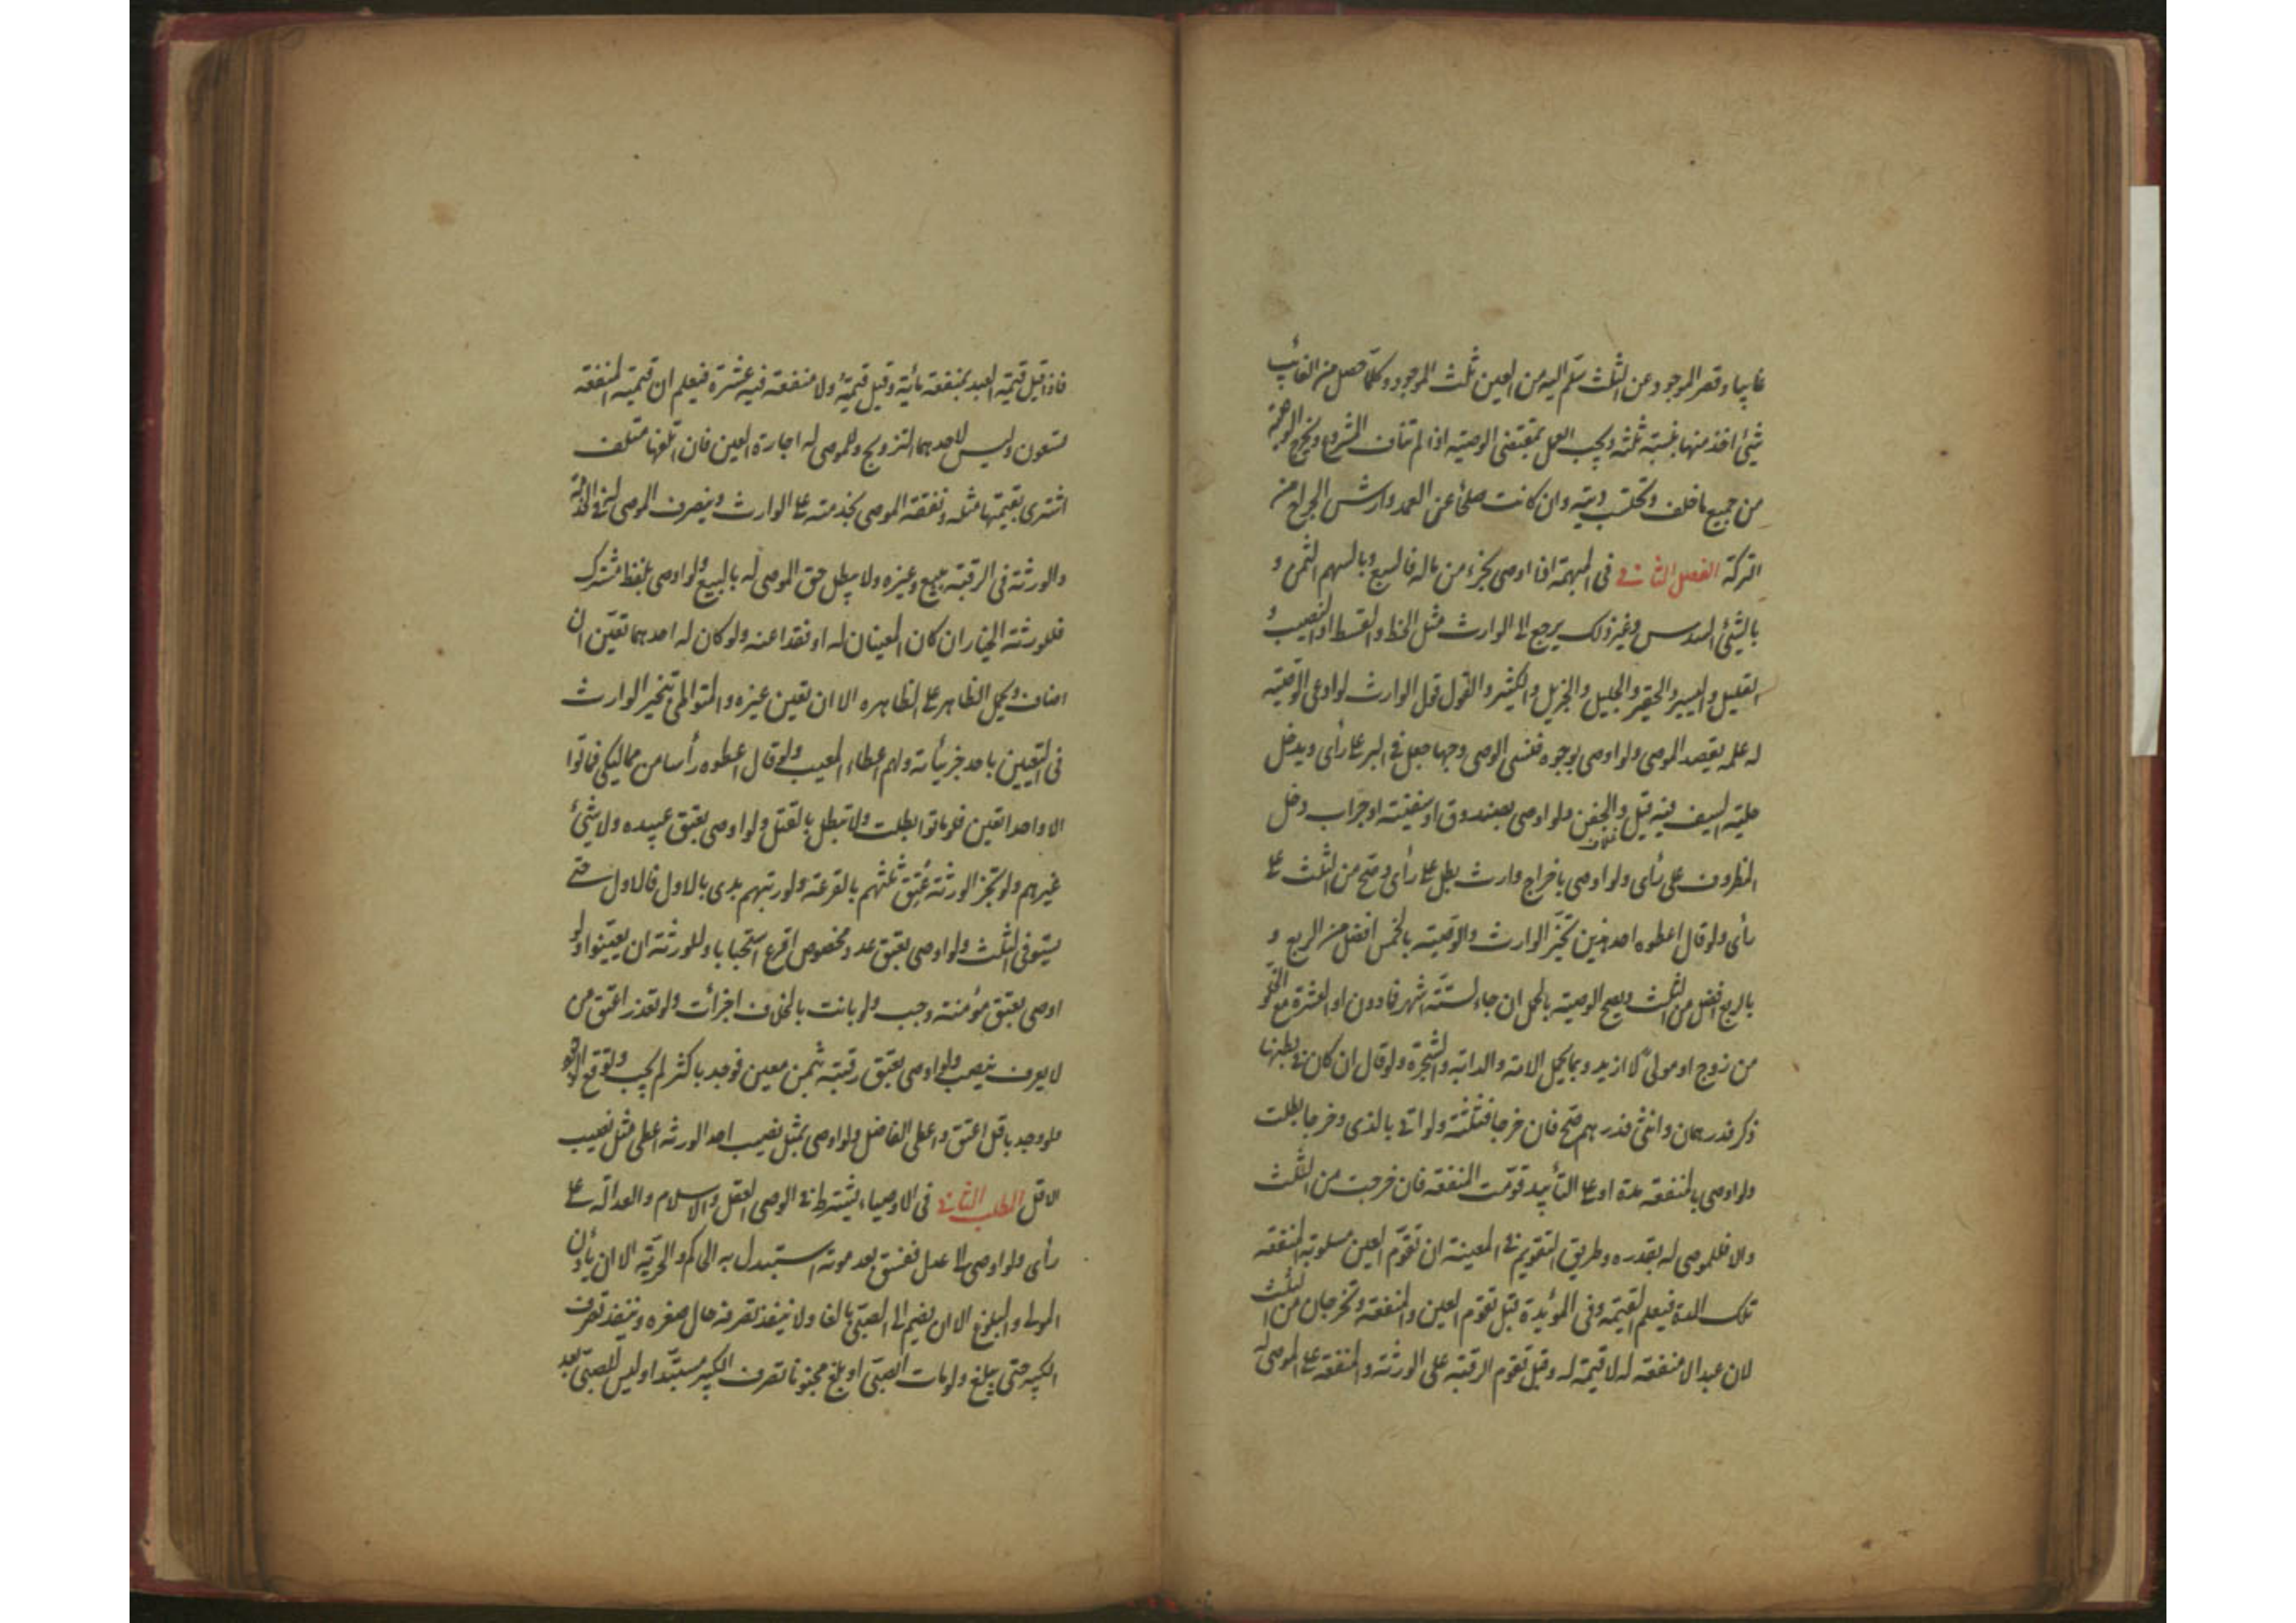 غايبا وقصر الموجود عن الثلث سلّم اليه من العين ثلث الموجود وكلّما حصل من الغائب
شئ اخذ منها بنسبته ثلثه ويجب العمل بمقتضى الوصيته اذا لم تناف الشرع ويخرج الواجبة
من جميع ما خلف وتحتسب ديته وان كانت صلحًا عن العمد وارش الجراح من
التركة الفصل الثانى فى المبهمة اذا اوصى بجزء من ماله فالسبع وبالسهم الثمن و
بالشئ السدس وغير ذلك يرجع الى الوارث مثل الحظ والقسط او النصيب و
القليل واليسير والحقير والجليل والجزيل والكثير والقول قول الوارث لو ادعى الوصيّته
له علمه بقصد الموصى ولو اوصى بوجوه فنسى الوصى وجها جعل فى البر على رأى ويدخل
حليته السيف فيه قيل والجفن ولو اوصى بصندوق او سفينته او جراب دخل
المظروف على رأى ولو اوصى باخراج وارث بطل على رأى وصحّ من الثلث على
رأى ولو قال اعطوه احد هذين تخيّر الوارث والوصيّته بالخمس افضل من الربع و
بالربع افضل من الثلث ويصح الوصيته بالحمل ان جاء لستّته اشهر فما دون او لعشرة مع الخلوّ
من زوج او مولى لا ازيد وبما يحمل الامته والدابّه والشجرة ولو قال ان كان فى بطنها
ذكر فدرهمان وانثى فدرهم صحّ فان خرجا فثلثته ولو اتى بالذى وخرجا بطلت
ولو اوصى بالمنفعته مدة او على التأبيد قوّمت المنفعته فان خرجت من الثلث
والا فللموصى له بقدره وطريق التقويم فى المعينته ان تقوّم العين مسلوبته المنفعته
تلك المدة فيعلم القيمته وفى المؤبدة قيل تقوّم العين والمنفعته وتخرجان من الثلث
لان عبدا لا منفعته له لا قيمته له وقيل تقوّم الرقبته على الورثته والمنفعته على الموصى له
فاذا قيل قيمته العبد بمنفعته مائته وقيل قيمته ولا منفعته فيه عشرة فيعلم ان قيمته المنفعته
تسعون وليس لاحدهما التزويج وللموصى له اجارة العين فان اتلفها متلف
اشترى بقيمتها مثله ونفقته الموصى بخدمته على الوارث ويتصرف الموصى له فى الخدمة
والورثته فى الرقبته ببيع وغيره ولا يبطل حق الموصى له بالبيع ولو اوصى بلفظ مشترك
فللورثته الخيار ان كان المعينان له او فقدا عنه ولو كان له احدهما تعيّن ان
اضاف ويحمل الظاهر على الظاهره الا ان تعين غيره والمتواطى يتخير الوارث
فى التعيين باحد جزئياته ولهم اعطاء المعيب ولو قال اعطوه رأسا من مماليكى فماتوا
الا واحدا تعين فلو ماتوا بطلت ولا تبطل بالقتل ولو اوصى بعتق عبيده ولا شئ
غيرهم ولم تجز الورثته عُتِق ثلثهم بالقرعته ولو رتبهم بدى بالاول فالاول حتى
يستوفى الثلث ولو اوصى بعتق عدد مخصوص اقرع استحبابا وللورثته ان يعيّنوا ولو
اوصى بعتق مؤمنته وجب ولو بانت بالخلاف اجزأت ولو تعذر اعتق من
لا يعرف بنصب ولو اوصى بعتق رقبته بثمن معين فوجد باكثر لم يجب وتوقع الوجود
ولو وجد باقل اعتق واعطى الفاضل ولو اوصى بمثل نصيب احد الورثه اعطى مثل نصيب
الاقل المطلب الثانى فى الاوصياء يشترط فى الوصى العقل والاسلام والعدالته على
رأى ولو اوصى الى عدل ففسق بعد موته استبدل به الحاكم والحرّيّته الا ان يأذن
المولى والبلوغ الا ان يضم الى الصبىّ بالغا ولا ينفذ تصرفه حال صغره وينفذ تصرف
الكبير حتى يبلغ ولو مات الصبّى او بلغ مجنونا تصرف الكبير مستبّدا وليس للصبّى بعد